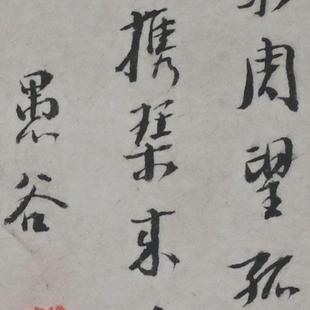 周望孤
携琴来
愚谷